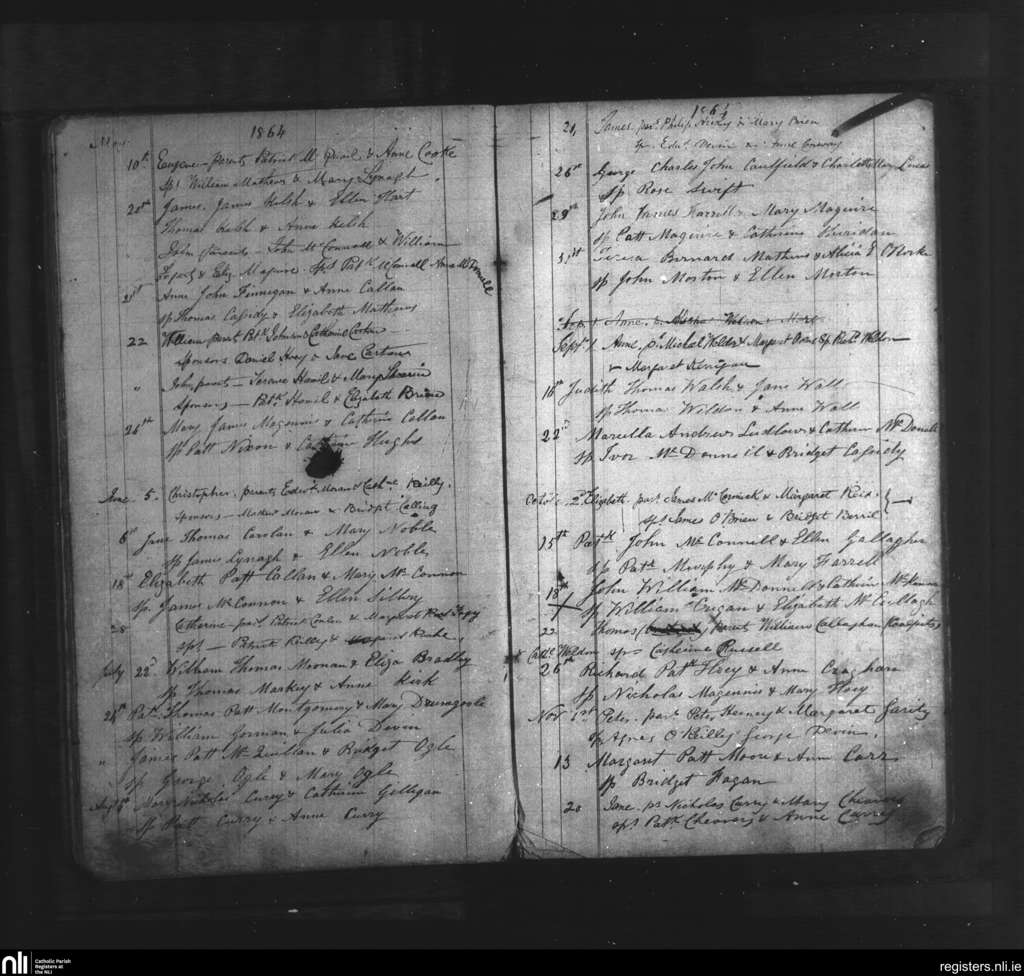 1864
May
10th Eugene - parents Patrick Mc Quail & Anne Cooke
Sps William Mathews & Mary Lynagh.
20th James. James Kelsh & Ellen Hart
Thomas Kelsh & Anne Kelsh
John parents - John McConnell & William
& Eliz Maguire Sps Patk McConnell Anne McConnell
21st Anne John Finnegan & Anne Callan
sp Thomas Cassidy & Elizabeth Mathews
22 William parents Patk Johnson & Catherine
Sponsors Daniel Hoey & Jane Cartan
" John, parents - Terence Hamil & Mary
Sponsors - Patk Hamil & Elizabeth Brien
26th Mary James Magennis & Cathrine Callan
sp Patt Nixon & Hughs
June 5. Christopher. parents Edwd Moran & Cathne Reilly.
Sponsors - Mathew Moran & Bridget Colling
6th Jane Thomas Carolan & Mary Noble
sp James Lynagh & Ellen Noble
18th Elizabeth Patt Callan & Mary McConnon
Sp. James McConnon & Ellen
28 Catherine - pars Patrick Conlan & Margaret
sps - Patrick Reilly &
July 22d William Thomas Moonan & Eliza Bradley
sp Thomas Markey & Anne Kirk
24th Patk Thomas Patt Montgomery & Mary
sp William Gorman & Julia Deven
" James Patt McQuillan & Bridget Ogle
sp George Ogle & Mary Ogle
Augt 5th Mary Nicholas Curry & Catherine Gilligan
sp Patt Curry & Anne Curry
1864
21, James. pars Philip & Mary Brien
Sps. Edwd Devin & Anne Conway
26th George Charles John Caulfield & Charlotte Mary Lucas
sp Rose Swift
29th John James Farrell & Mary Maguire
sp Catt Maguire & Catherine Sheridan
31st Teresa Bernard Mathews & Alicia E O'Rorke
sp John Morton & Ellen Morton
Sep 1. Anne.
Septr 1 Anne, ps Michael Weldon & Margaret Sp Richd Weldon
& Margaret Kerigan
16th Judith Thomas Walsh & Jane Wall
sp Thomas Wildon & Anne Wall
22d Marcella Andrew Ludlow & Cathern McDonnell
sp Ivor McDonneil & Bridget Cassidy
October 2d Elizabeth pars James McCormick & Margaret Reid.
sps James O'Brien & Bridget
15th Patk John McConnell & Ellen Gallagher
sp Patk Murphy & Mary Farrell
18th John William McDonnell & Catherin
sp William Crugan & Elizabeth McCullagh
22 Thomas parents William Callaghan
Cathe Weldon sps Catherine Russell
26th Richard Patk Hoey & Anne
sp Nicholas Magennis & Mary Hoey
Nov 1st Peter. pars Peter Heeney & Margaret Garity
sp Agnes O'Reilly George Devin.
13 Margaret Patt Moore & Ann Carr
sp Bridget Hagan
20 Jane. ps Nicholas Carry & Mary Cheevers
sps Patk Cheevers & Anne Carrey
nli
Catholic Parish
Registers at
the NLI
registers.nli.ie